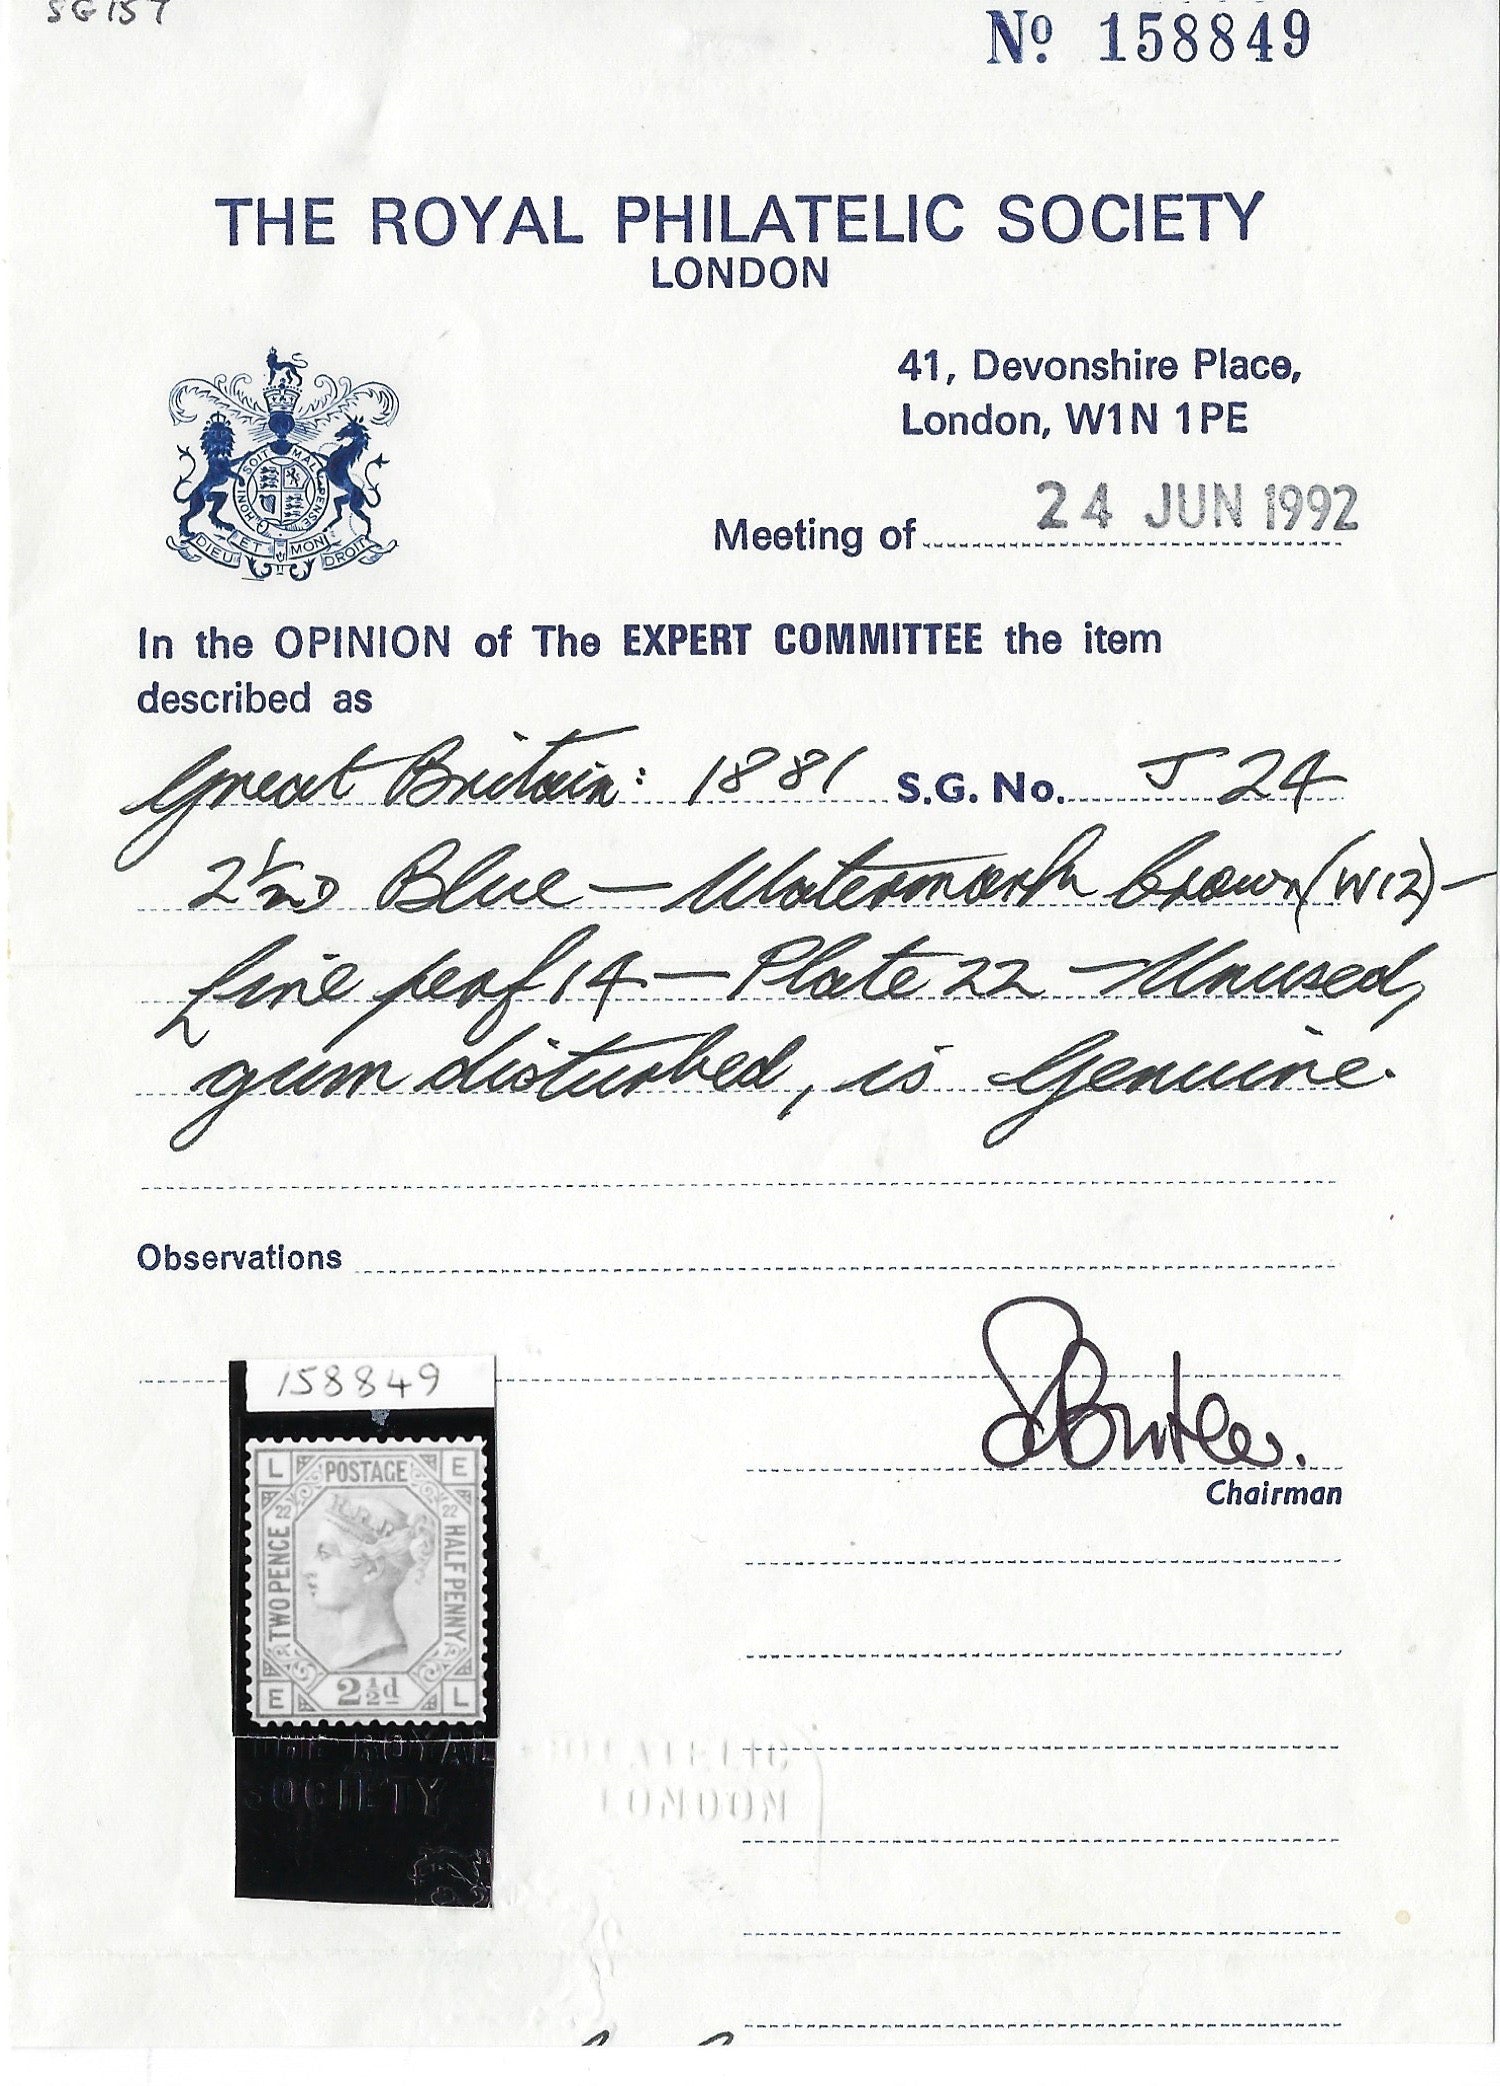 SG157
Nº 158849
THE ROYAL PHILATELIC SOCIETY
LONDON
41, Devonshire Place,
London, W1N 1PE
Meeting of 24 JUN 1992
HONI SOIT MAL PENSE
DIEU ET MON DROIT
In the OPINION of The EXPERT COMMITTEE the item
described as
Great Britain: 1881 S.G. No. J 24
2½D Blue — Watermark Crown (W12) —
line perf 14 — Plate 22 — Unused,
gum disturbed, is Genuine.
Observations
158849
L POSTAGE E
22 22
TWO PENCE HALF PENNY
E 2½d L
Butler.
Chairman
THE ROYAL PHILATELIC
SOCIETY LONDON